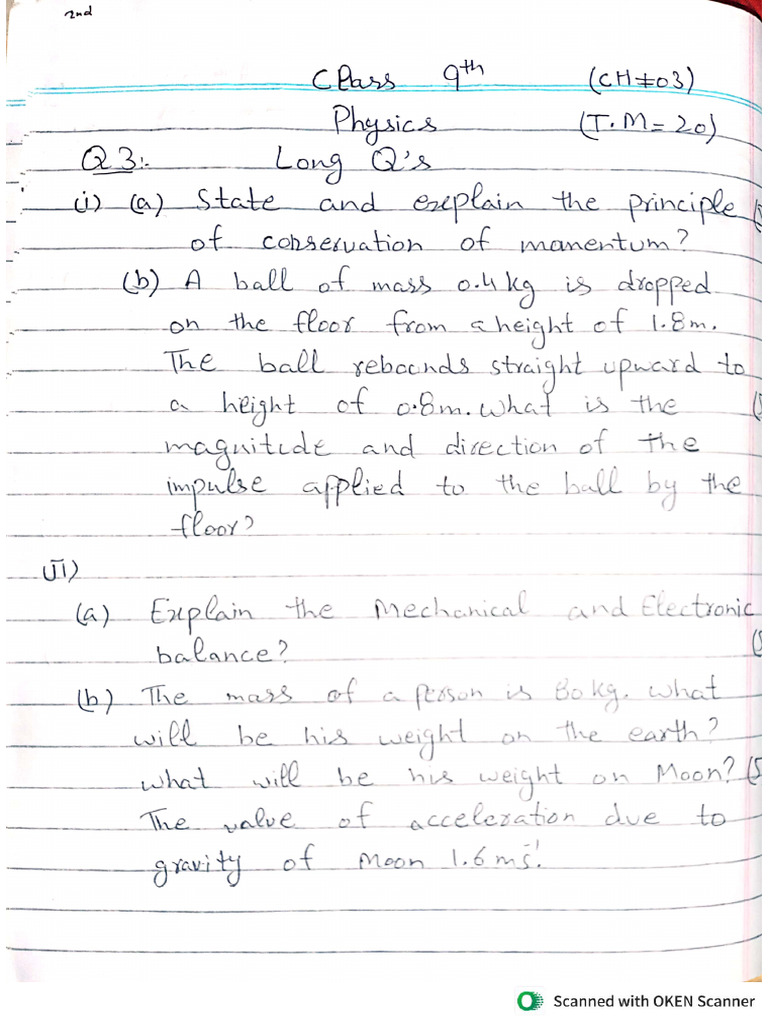 2nd
Class 9th (CH#03)
Physics (T.M=20)
Q3:- Long Q's
(i) (a) State and explain the principle (5
of conservation of momentum?
(b) A ball of mass 0.4kg is dropped
on the floor from a height of 1.8m.
The ball rebounds straight upward to
a height of 0.8m. what is the (5
magnitude and direction of the
impulse applied to the ball by the
floor?
(ii)
(a) Explain the Mechanical and Electronic
balance? (5
(b) The mass of a person is 80kg. what
will be his weight on the earth?
what will be his weight on Moon? (5
The value of acceleration due to
gravity of Moon 1.6ms⁻¹.
Scanned with OKEN Scanner